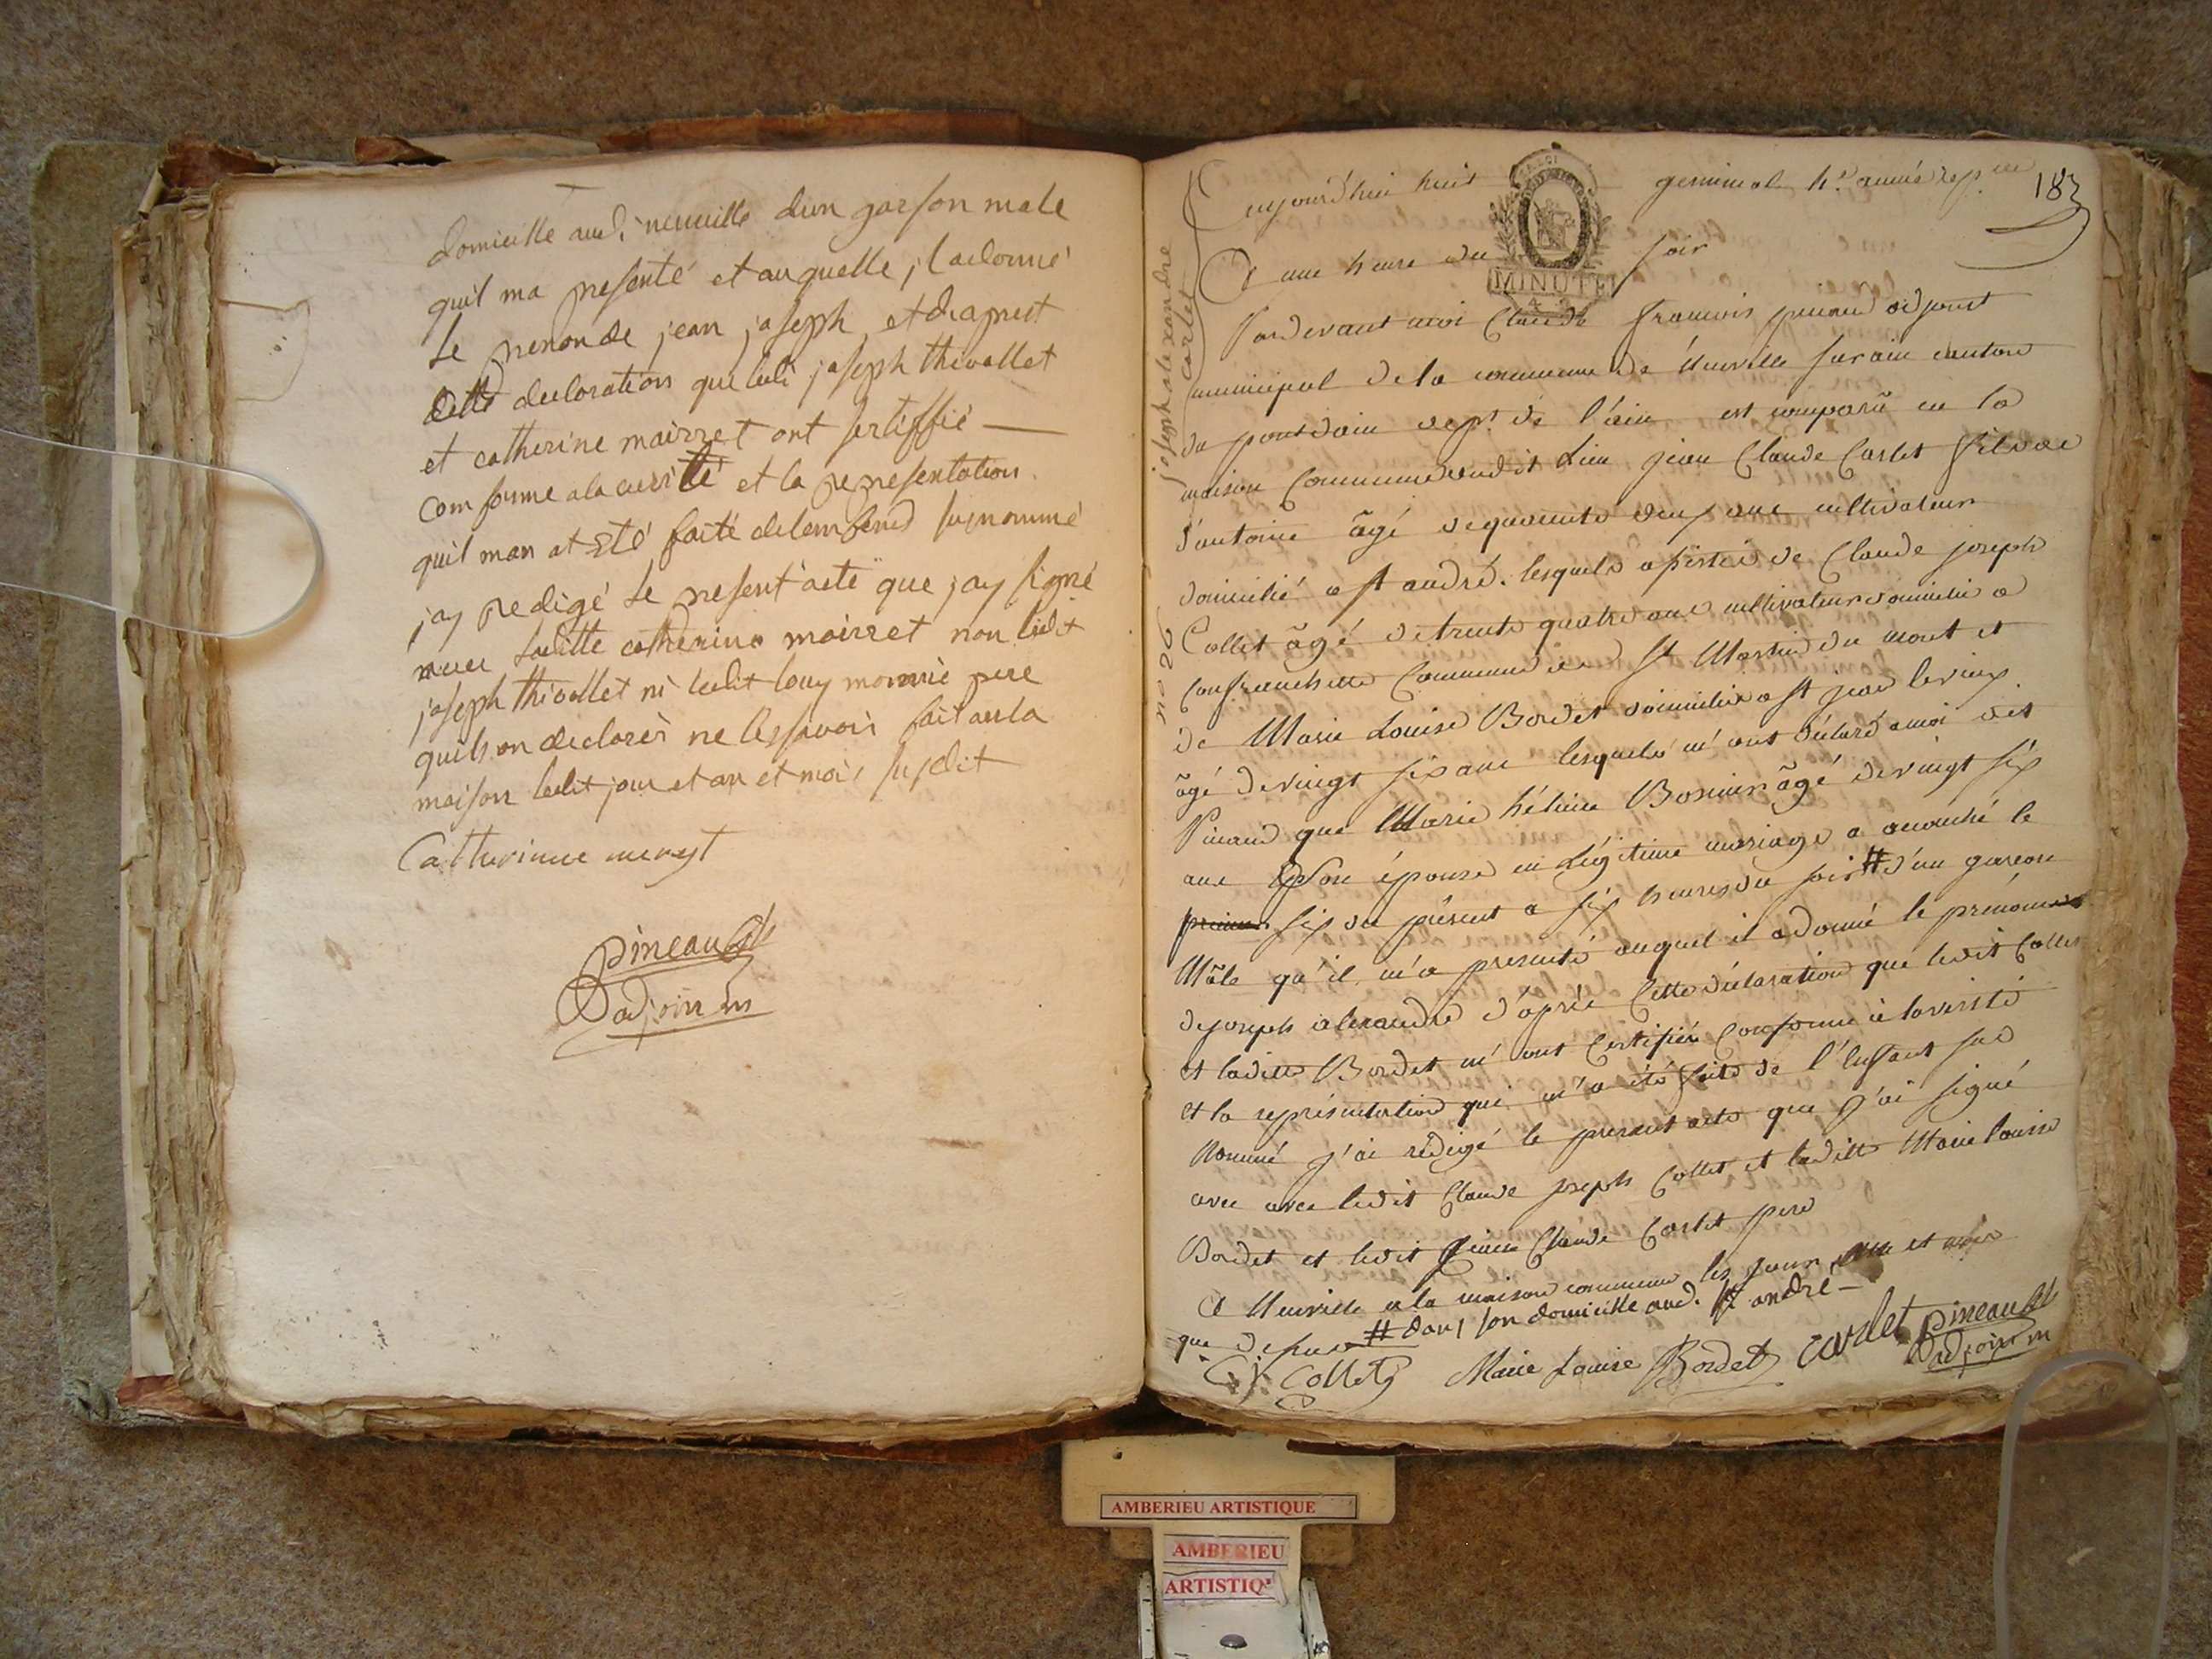 domicille aud. neuville dun garson male
quil ma presenté et auquelle jl a donné
le prenon de jean joseph et d'aprest
cette declaration que ledi joseph thevollet
et catherine mairret ont sertiffié
comforme a la verité et la representation
quil man at été faite delemfend susnommé
j'ay redigé le present acte que j'ay signé
avec laditte catherine moirret non ledit
joseph thivollet ni ledit louy monnié pere
quils on declarér ne les savoir fait en la
maison ledit jour et an et mois susdit
Catherinne mereyt
pineaud
adjoin m
183
joseph alexandre
carlet
no 26
Aujourd'hui huit germinal h.e année rep.ne
A une heure du soir
MINUTE
Pardevant moi Claude françois pineaud adjoint
municipal de la commune de Neuville sur ain canton
du pont dain dep.t de l'ain est comparû en la
maison Commune dudit Lieu jean Claude Carlet fils de
d'antoine âgé de quarente deux ans cultivateur
domicilié a st andré. lesquels assisté de Claude joseph
Collet âgé de trente quatre ans cultivateur domicilié a
Confranchette Commune de St Martin du mont et
de Marie Louise Bordet domiciliée a st jean le vieux
âgé de vingt six ans lesquels m'ont déclaré a moi dit
Pinaud que Marie héleine Bonnin âgé de vingt six
ans son épouse en Légitime mariage a acouché le
six du présent a six heures du soir # d'un garcon
Mâle qu'il m'a presenté auquel il a donné le prénom
de joseph alexandre d'après Cette déclaration que ledit Collet
et laditte Bordet m'ont Certifiés Conforme à la vérité
et la représentation qui m'a été faite de l'enfant sus
Nommé j'ai rédigé le present acte que j'ai signé
avec avec ledit Claude joseph Collet et laditte Marie louise
Bordet et ledit jean Claude Carlet pere
A Neuville a la maison commune les jour ans et mois
que dessus # dans son domicille aud. st andré
C. j. Collet Marie Louise Bordet carlet pineaud
adjoin m
AMBERIEU ARTISTIQUE
AMBERIEU
ARTISTIQ